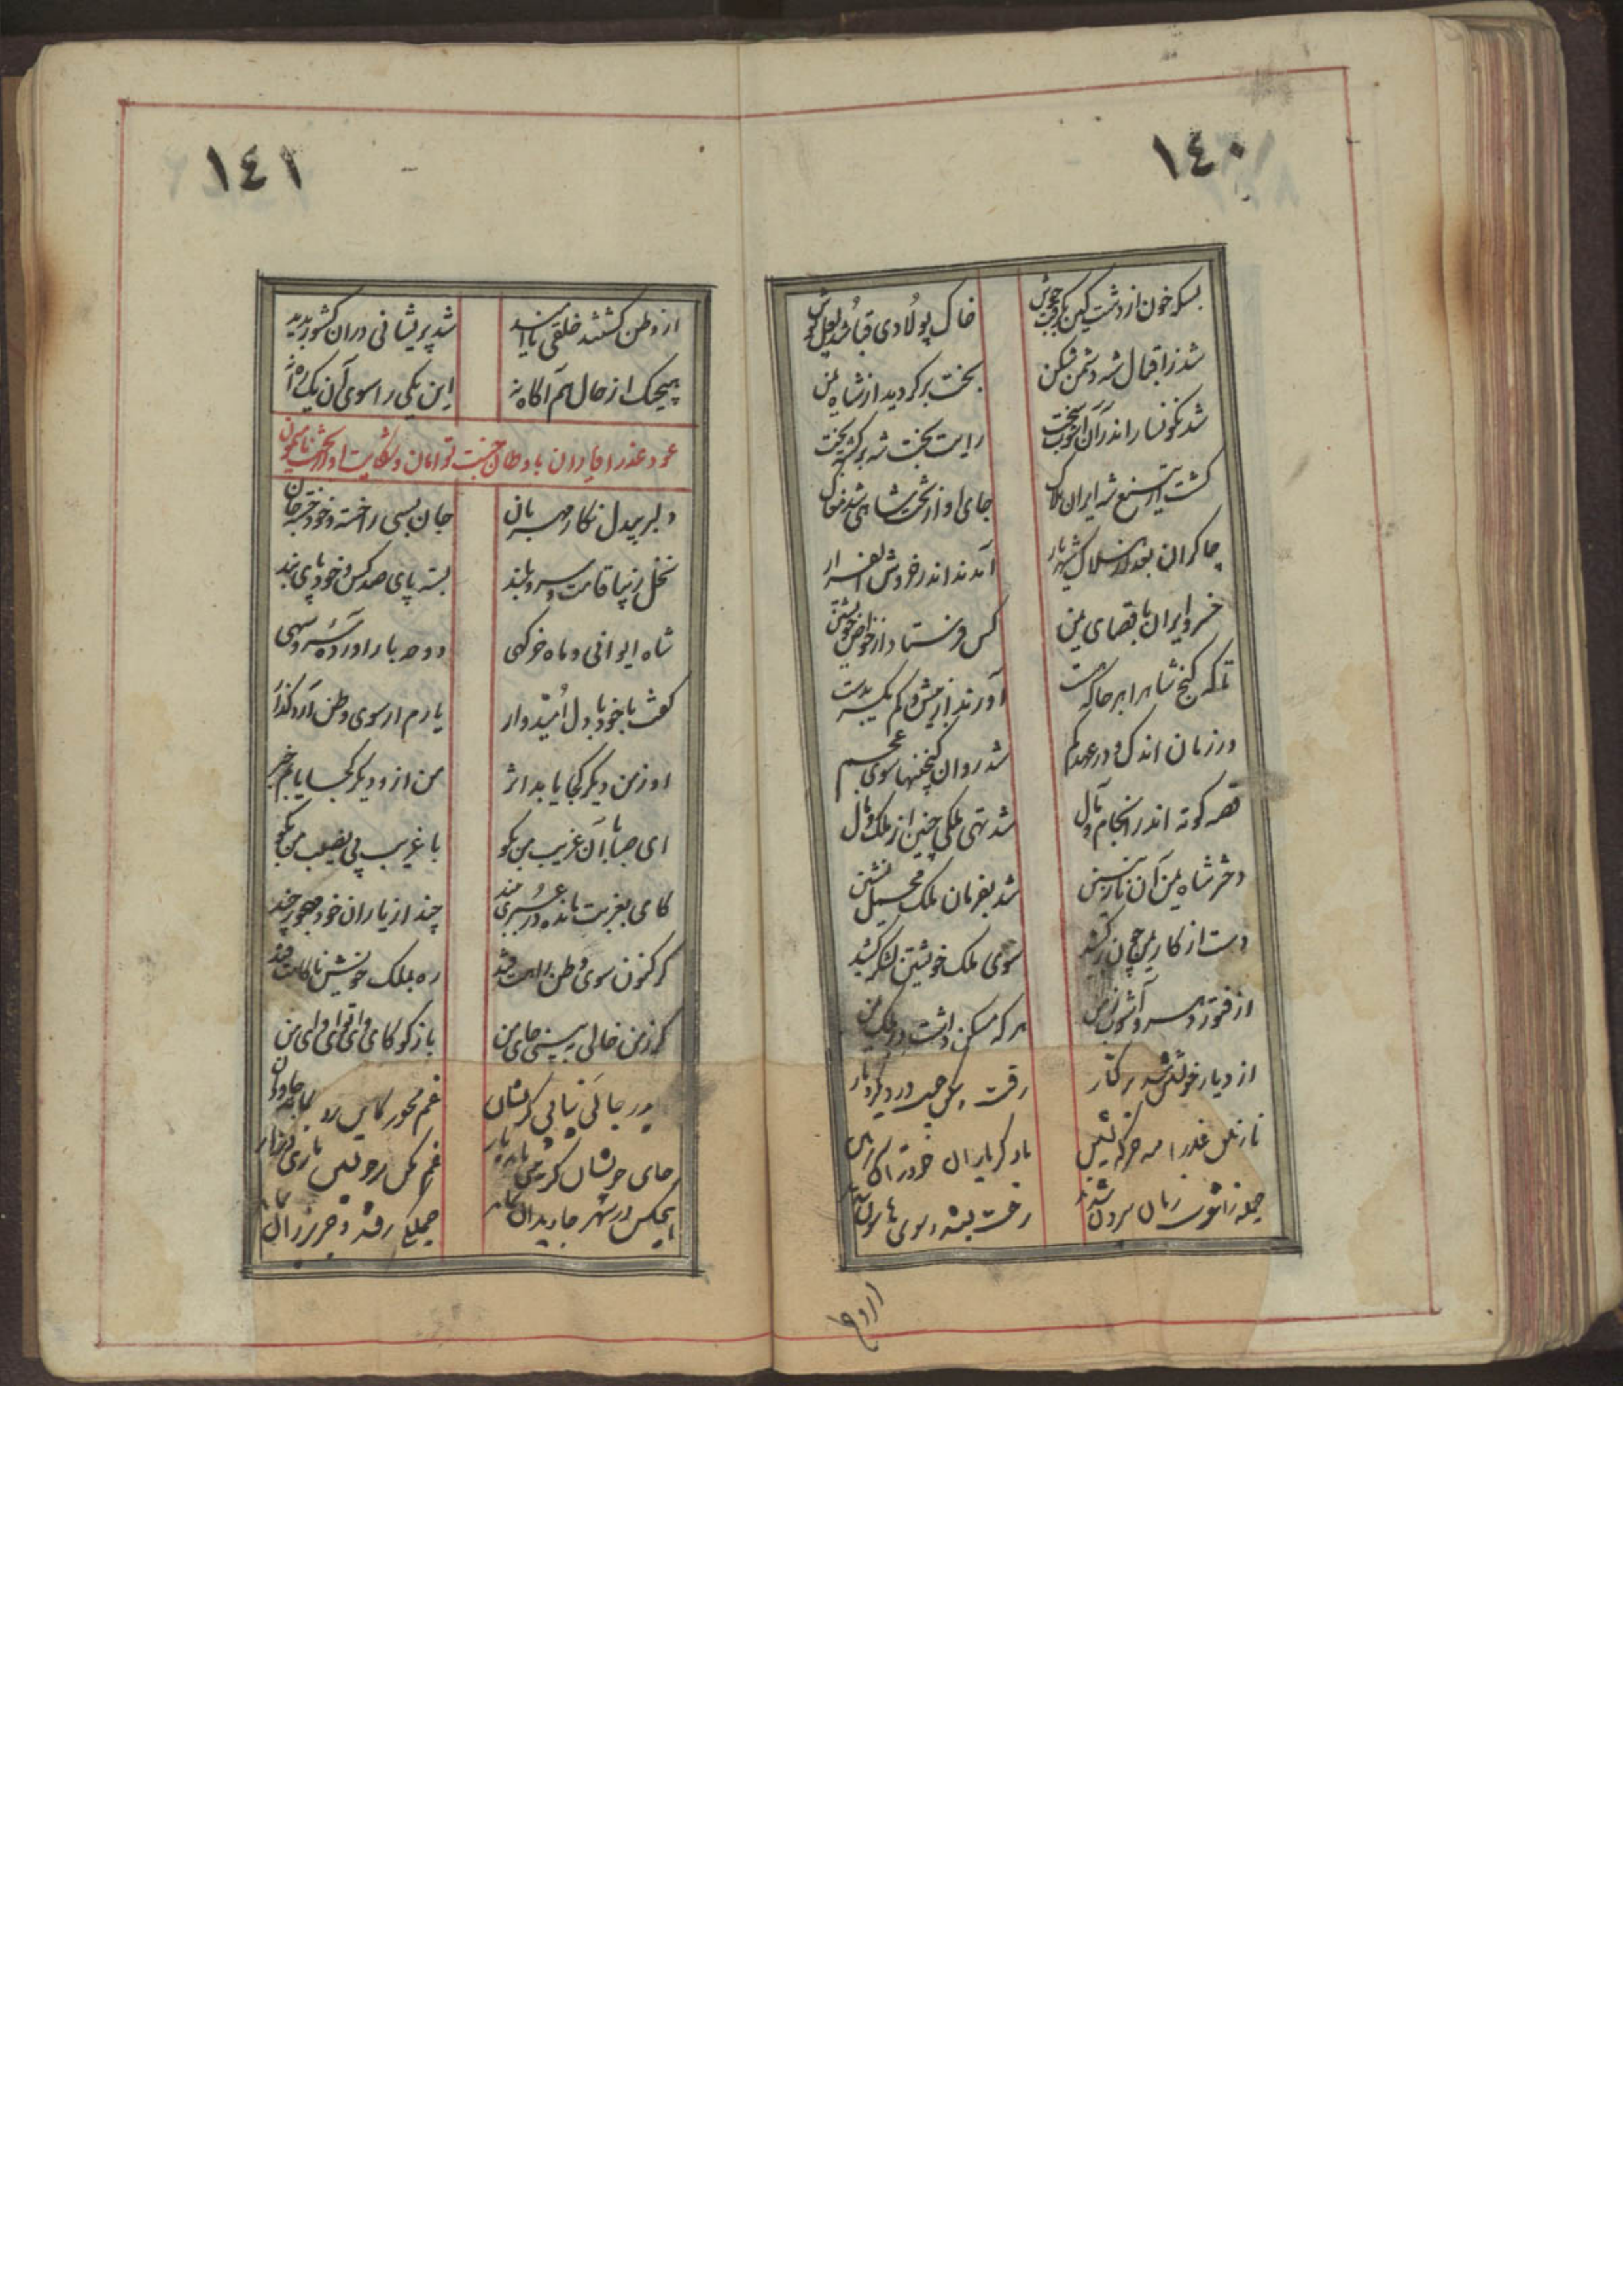 ١٤٠
بسکه خون از دشت کین بگرفت جوش خاک پولادی قبا شد لعل پوش
شد ز اقبال شه دشمن شکن بخت برگردید از شاه یمن
شد نگونسار اندر آن آشوب سخت رایت بخت شه برگشته بخت
گشت از تیغ شه ایران هلاک جای او از تخت شاهی شد مغاک
چاکران بعد از هلاک شهریار آمدند اندر خروش الفرار
خسرو ایران باقصای یمن کس فرستاد از خواص خویشتن
تا که گنج شاه را هر جا که هست آورند از بیش و کم یکسر بدست
در زمان اندک و در عهد کم شد روان گنجینها سوی عجم
قصه کوته اندر انجام و مآل شد تهی ملکی چنین از ملک و مال
دختر شاه یمن آن نازنین شد بفرمان ملک محمل نشین
دست از کار یمن چون برکشید سوی ملک خویشتن لشکر کشید
از فتور دهر و آشوب زمن هر که مسکن داشت در ملک یمن
از دیار خویش شد بر کنار رفت هر کس جست در دیگر دیار
نازنین عذرا مه خرگه نشین یاد کرد یاران خود در آن
جمله ز آشوب زمان بیرون شدند رخت بسته سوی هامون شدند
از وطن
١٤١
از وطن گشتند خلقی ناامید شد پریشانی در آن کشور پدید
هیچیک از حال هم آگاه نه این یکی را سوی آن یک راه نه
عود عذرا با یاران باوطان جنت توامان و شکایت او از بخت نامیمون
دلبر بیدل نگار مهربان جان بسی را خسته و خود خسته جان
نخل زیبا قامت سرو بلند بسته پای صد کس و خود پای بند
شاه ایوانی و ماه خرگهی دوحه بار آورده سرو سهی
گفت با خود با دل امیدوار یارم ار سوی وطن آرد گذار
او ز من دیگر کجا یابد اثر من ازو دیگر کجا یابم خبر
ای صبا با آن غریب من بگو با غریب بی نصیب من بگو
کای بغربت مانده در عسری چند چند از یاران خود مهجور چند
گر کنون سوی وطن رایت فتد ره بملک خویش ناگاهت فتد
گر ز من خالی ببینی جای من بازگو کای وای وای وای من
در جائی نیابی گر نشان غم مخور کاین رو
جای خویشان گر تهی یابی ز یار غم مکن
هیچکس در شهر جاویدان نماند جملگی رفتند و جز یزدان نماند